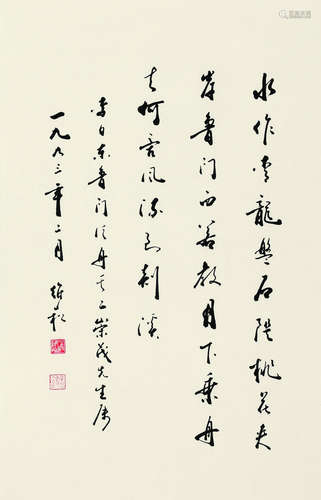 水作青龍盤石隄桃花夾
岸魯門西若教月下乘舟
去何啻風流到剡溪
李白東魯門泛舟之二崇茂先生属
一九八三年二月 維松